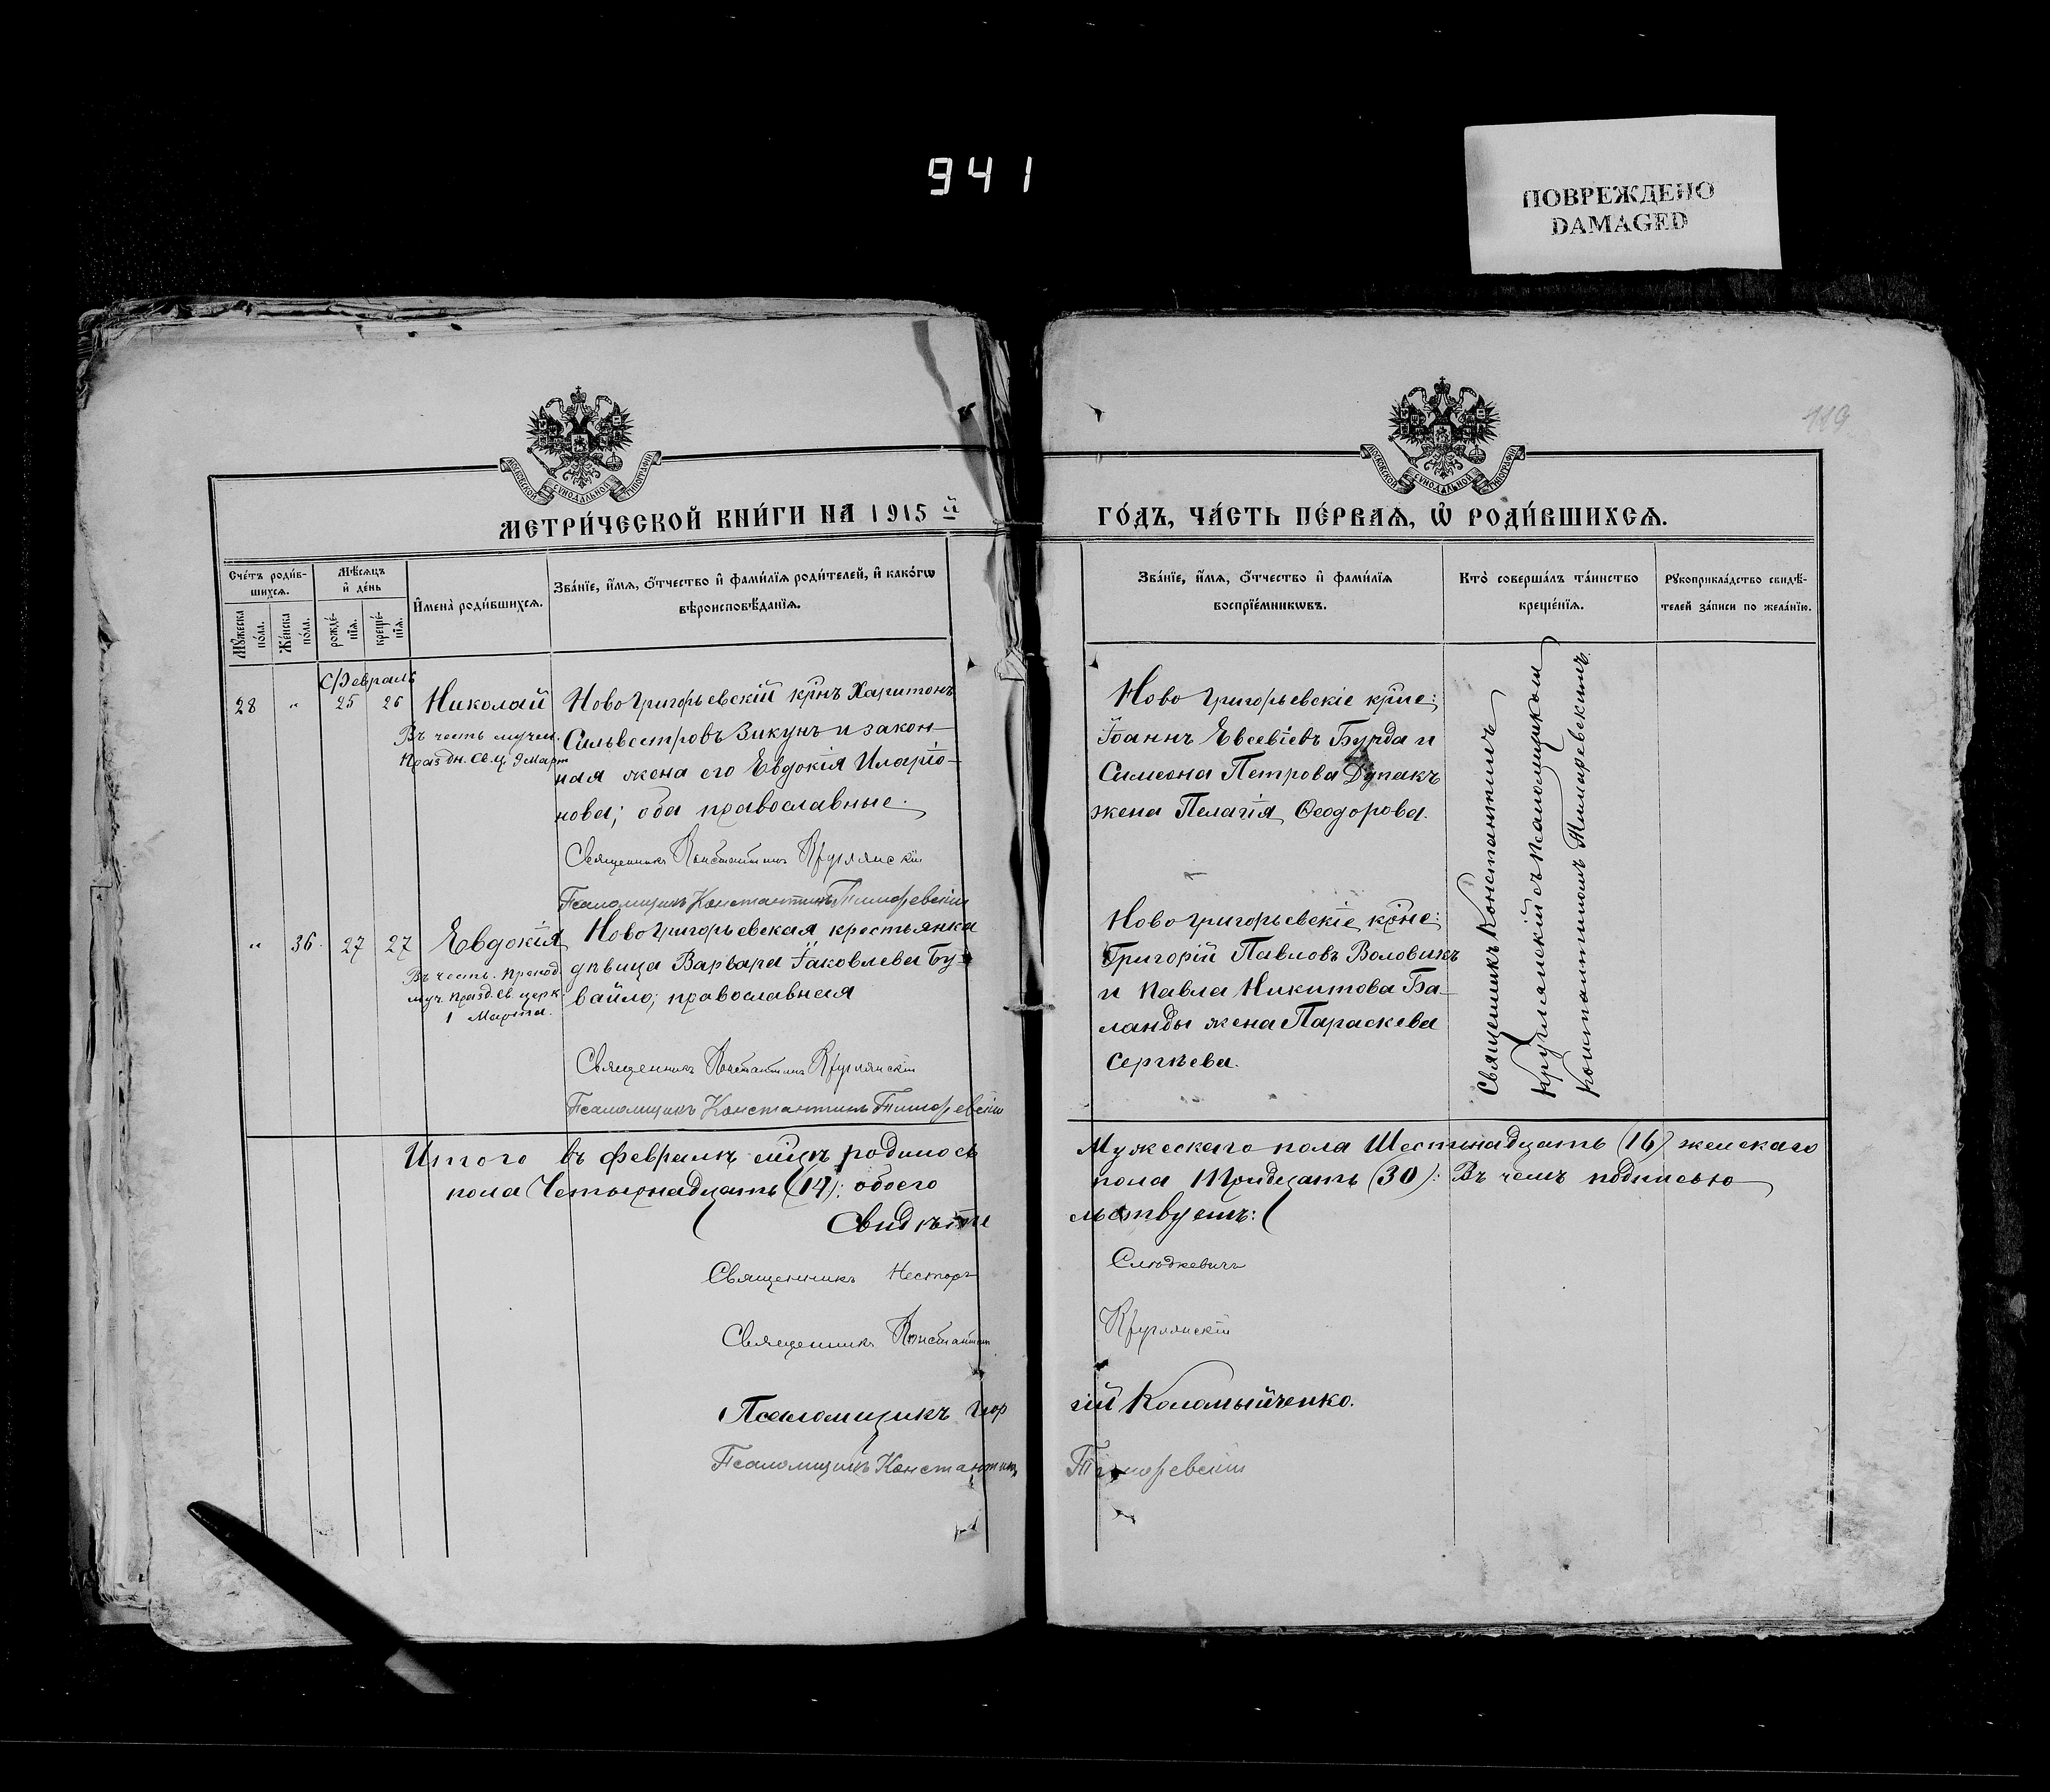 941
ПОВРЕЖДЕНО
DAMAGED
119
МОСКОВСКОЙ СѴНОДАЛЬНОЙ ТИПОГРАФІИ
МОСКОВСКОЙ СѴНОДАЛЬНОЙ ТИПОГРАФІИ
МЕТРИ́ЧЕСКОЙ КНИ́ГИ НА 1915 й
ГО́ДЪ, ЧА́СТЬ ПЕ́РВАѦ, Ѿ РОДИ́ВШИХСѦ.
Сче́тъ роди́в-
шихсѧ.
Мѣ́сѧцъ
и҆ де́нь
Мꙋ́жеска
по́ла.
Же́нска
по́ла.
рожде́-
нїѧ.
креще́-
нїѧ.
И҆мена̀ роди́вшихсѧ.
Зва́нїе, и҆́мѧ, ѻ҆́тчество и҆ фами́лїѧ роди́телей, и҆ како́гѡ
вѣроисповѣ́данїѧ.
Зва́нїе, и҆́мѧ, ѻ҆́тчество и҆ фами́лїѧ
воспрїе́мникѡвъ.
Кто̀ соверша́лъ та́инство
креще́нїѧ.
Рꙋкоприкла́дство свидѣ́-
телей за́писи по жела́нїю.
Февраль
28 " 25 26 Николай
Въ честь мучен.
Праздн. Св. ц. 9 Март
Ново Григорьевскій крнъ Харитонъ
Сильвестровъ Зикунъ и закон-
ная жена его Евдокія Иларіо-
нова; оба православные.
Священникъ Константинъ Круглянскій
Псаломщикъ Константинъ Тиморевскій
Ново Григорьевскіе крне:
Іоаннъ Евсевіевъ Бурда и
Симеона Петрова Дупакъ
жена Пелагія Ѳеодорова.
" 36. 27 27 Евдокія
Въ честь. препод.
муч. Празд. Св. церк.
1 Марта.
Ново Григорьевская крестьянка
дѣвица Варвара Іаковлева Бу-
вайло; православная
Священникъ Константинъ Круглянскій
Псаломщикъ Константинъ Тиморевскій
Ново Григорьевскіе крне:
Григорій Павловъ Воловикъ
и Павла Никитова Ба-
ланды жена Параскева
Сергѣева.
Священникъ Константинъ
Круглянскій съ Псаломщикомъ
Константиномъ Тиморевскимъ.
Итого въ февралѣ мцѣ родилось
Мужескаго пола Шестьнадцать (16) женскаго
пола Четырнадцать (14): обоего
пола Тридцать (30): Въ чемъ подписью
Свидѣте
льствуемъ:
Священникъ Несторъ
Слюдкевичъ
Священникъ Константин
Круглянскій
Псаломщикъ Геор
гій Коломыйченко.
Псаломщикъ Константинъ
Тиморевскій